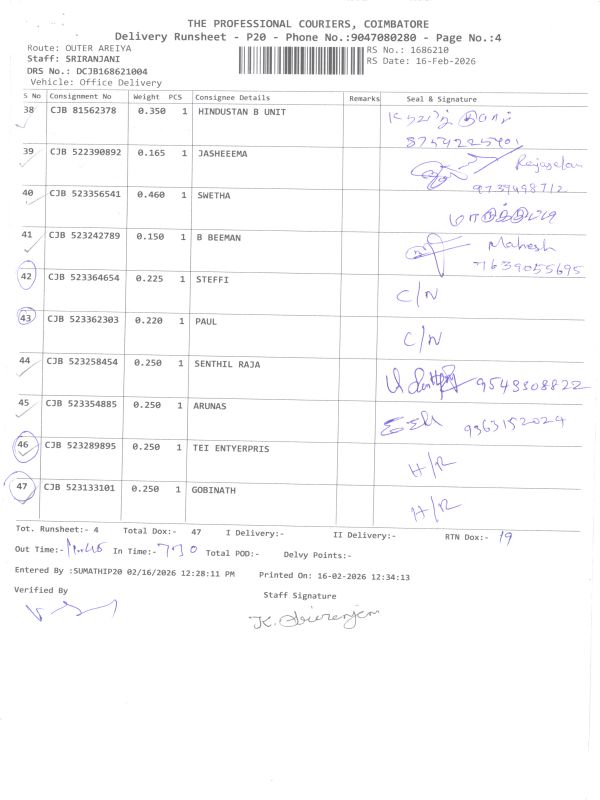 THE PROFESSIONAL COURIERS, COIMBATORE
Delivery Runsheet - P20 - Phone No.:9047080280 - Page No.:4
Route: OUTER AREIYA RS No.: 1686210
Staff: SRIRANJANI RS Date: 16-Feb-2026
DRS No.: DCJB168621004
Vehicle: Office Delivery
S No Consignment No Weight PCS Consignee Details Remarks Seal & Signature
38 CJB 81562378 0.350 1 HINDUSTAN B UNIT
8754225401
39 CJB 522390892 0.165 1 JASHEEEMA
9739498712
40 CJB 523356541 0.460 1 SWETHA
41 CJB 523242789 0.150 1 B BEEMAN Mahesh
7639055695
42 CJB 523364654 0.225 1 STEFFI C/N
43 CJB 523362303 0.220 1 PAUL C/N
44 CJB 523258454 0.250 1 SENTHIL RAJA 9543308822
45 CJB 523354885 0.250 1 ARUNAS 9363152024
46 CJB 523289895 0.250 1 TEI ENTYERPRIS H/R
47 CJB 523133101 0.250 1 GOBINATH H/R
Tot. Runsheet:- 4 Total Dox:- 47 I Delivery:- II Delivery:- RTN Dox:- 19
Out Time:- In Time:- 730 Total POD:- Delvy Points:-
Entered By :SUMATHIP20 02/16/2026 12:28:11 PM Printed On: 16-02-2026 12:34:13
Verified By Staff Signature